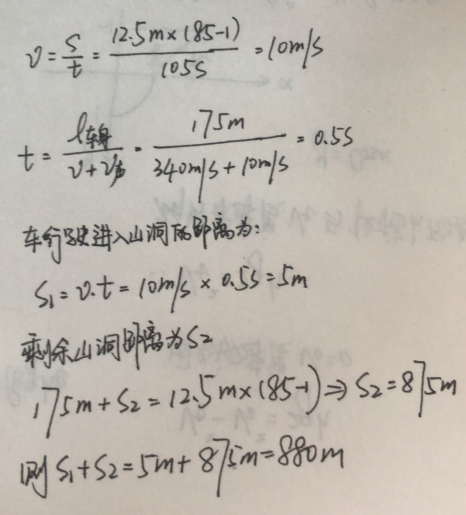 v = s/t = 12.5m×(85-1)/105s = 10m/s
t = l车身/(v+v声) = 175m/(340m/s+10m/s) = 0.5s
车行驶进入山洞的距离为:
S₁ = v.t = 10m/s × 0.5s = 5m
剩余山洞距离为S₂
175m + S₂ = 12.5m×(85-1) ⇒ S₂ = 875m
则 S₁+S₂ = 5m+875m = 880m